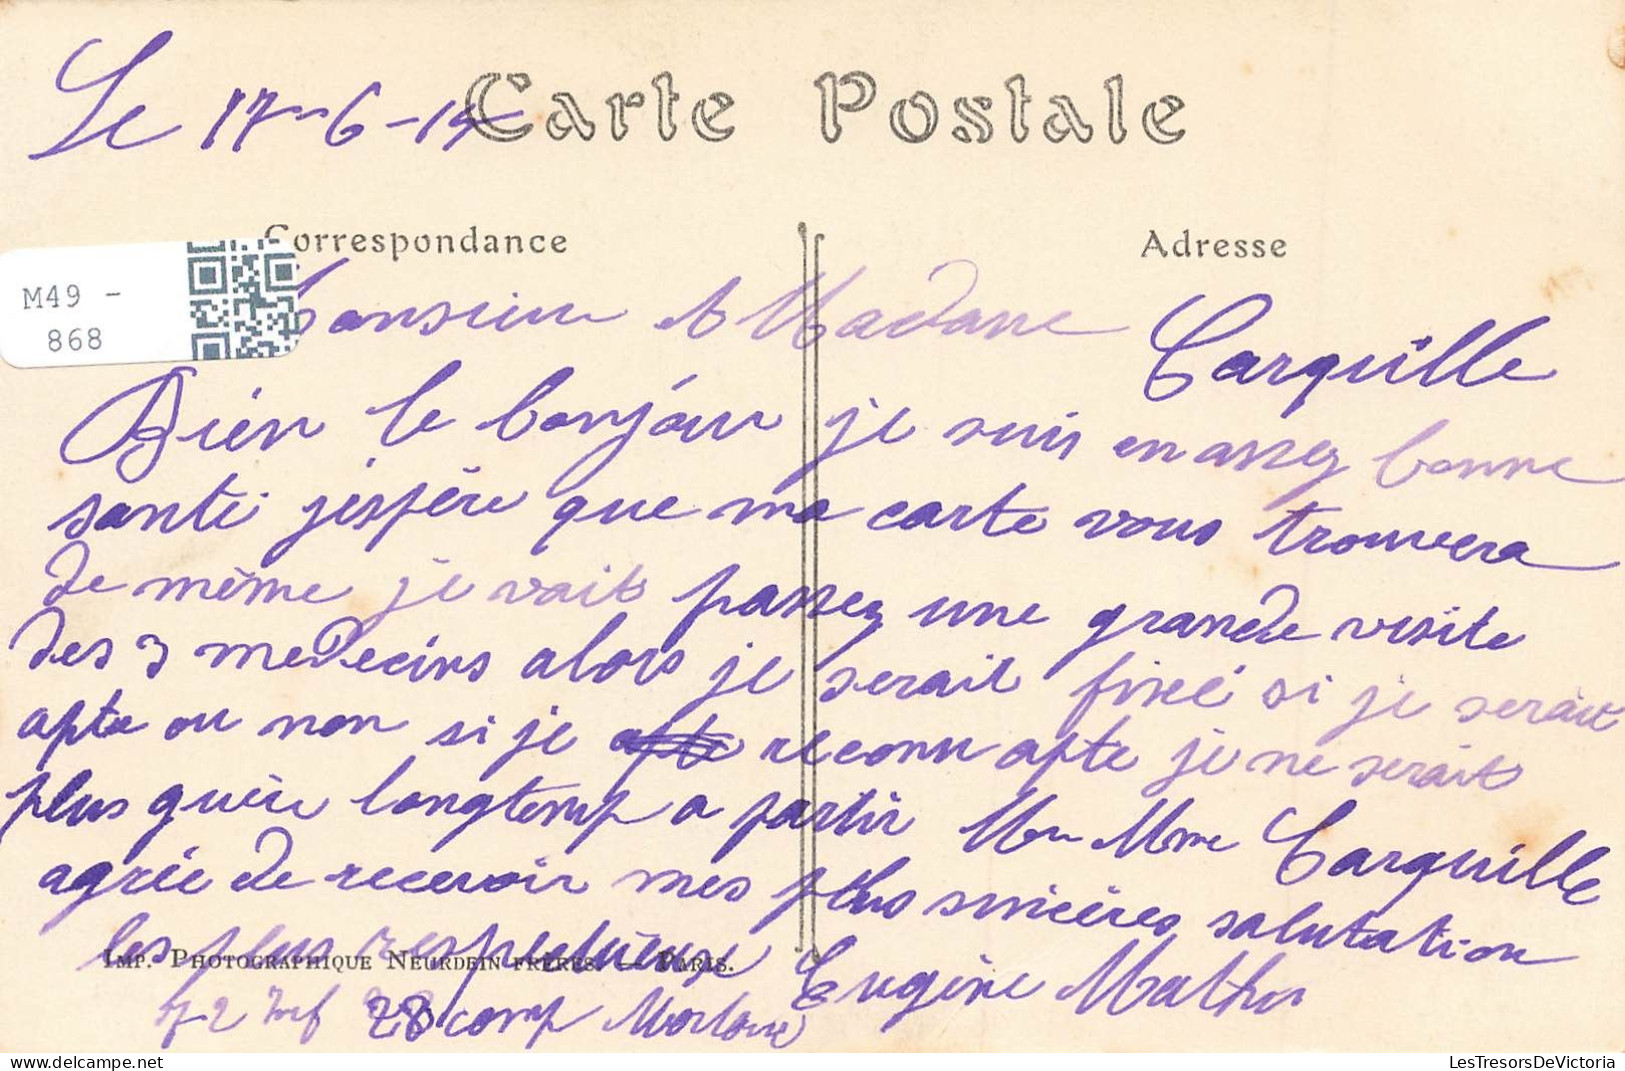 Le 17-6-15
Carte Postale
Correspondance
Adresse
M49 -
868
Monsieur et Madame Carquille
Bien le bonjour je suis en assez bonne
santé jespère que ma carte vous trouvera
de même je vait passez une grande visite
des 3 medecins alors je serait fixé si je serait
apte ou non si je reconu apte je ne serait
plus guère longtemp a partir Mr Mme Carquille
agrée de recevoir mes plus sincères salutation
les plus respectueuse Eugène
IMP. PHOTOGRAPHIQUE NEURDEIN FRÈRES. — PARIS.
72 Inf 28 comp
LesTresorsDeVictoria
delcampe.net